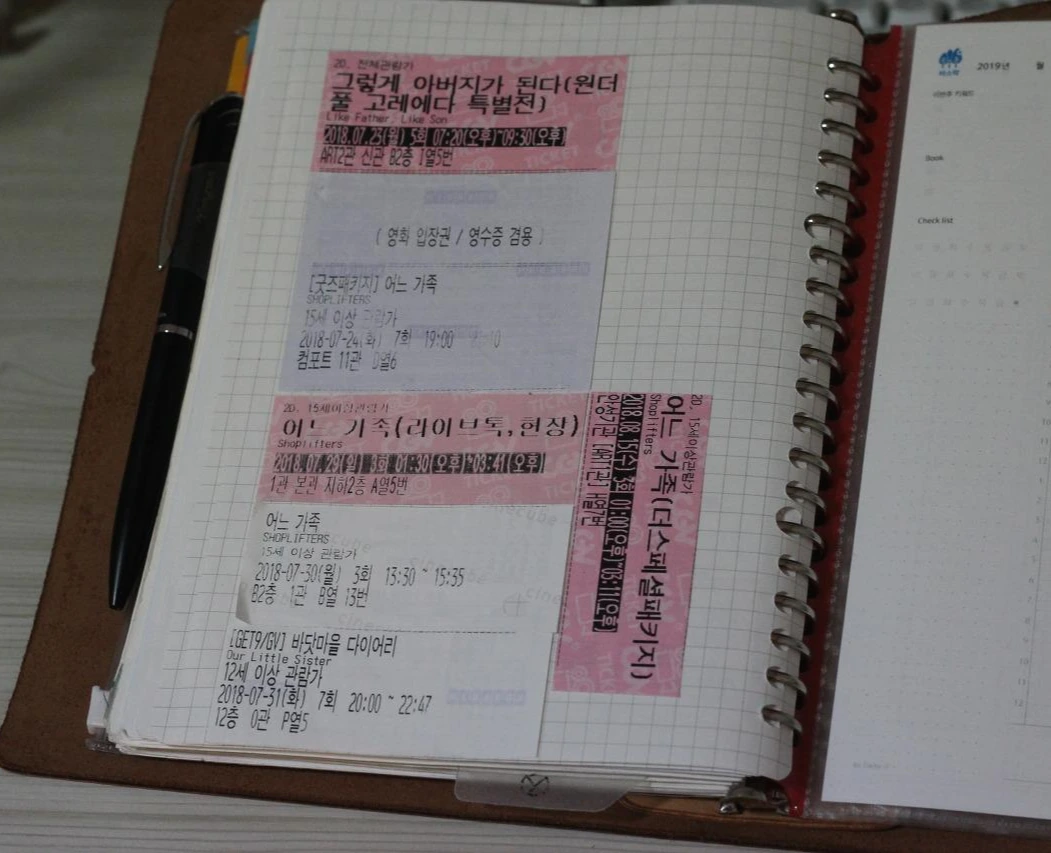 2D. 전체관람가
그렇게 아버지가 된다(원더
풀 고레에다 특별전)
Like Father, Like Son
2018.07.23(월) 5회 07:20(오후)~09:30(오후)
ART2관 신관 B2층 I열5번
( 영화 입장권 / 영수증 겸용 )
[굿즈패키지] 어느 가족
SHOPLIFTERS
15세 이상 관람가
2018-07-24(화) 7회 19:00
컴포트 11관 D열6
2D. 15세이상관람가
어느 가족(라이브톡,현장)
Shoplifters
2018.07.29(일) 3회 01:30(오후)~03:41(오후)
1관 본관 지하2층 A열5번
어느 가족
SHOPLIFTERS
15세 이상 관람가
2018-07-30(월) 3회 13:30 ~ 15:35
B2층 1관 B열 13번
[GET9/GV] 바닷마을 다이어리
Our Little Sister
12세 이상 관람가
2018-07-31(화) 7회 20:00 ~ 22:47
12층 0관 P열5
2D. 15세이상관람가
어느 가족(더스페셜패키지)
Shoplifters
2018.08.15(수) 3회 01:00(오후)~03:11(오후)
H열7번
2019년 월
Book
Check list